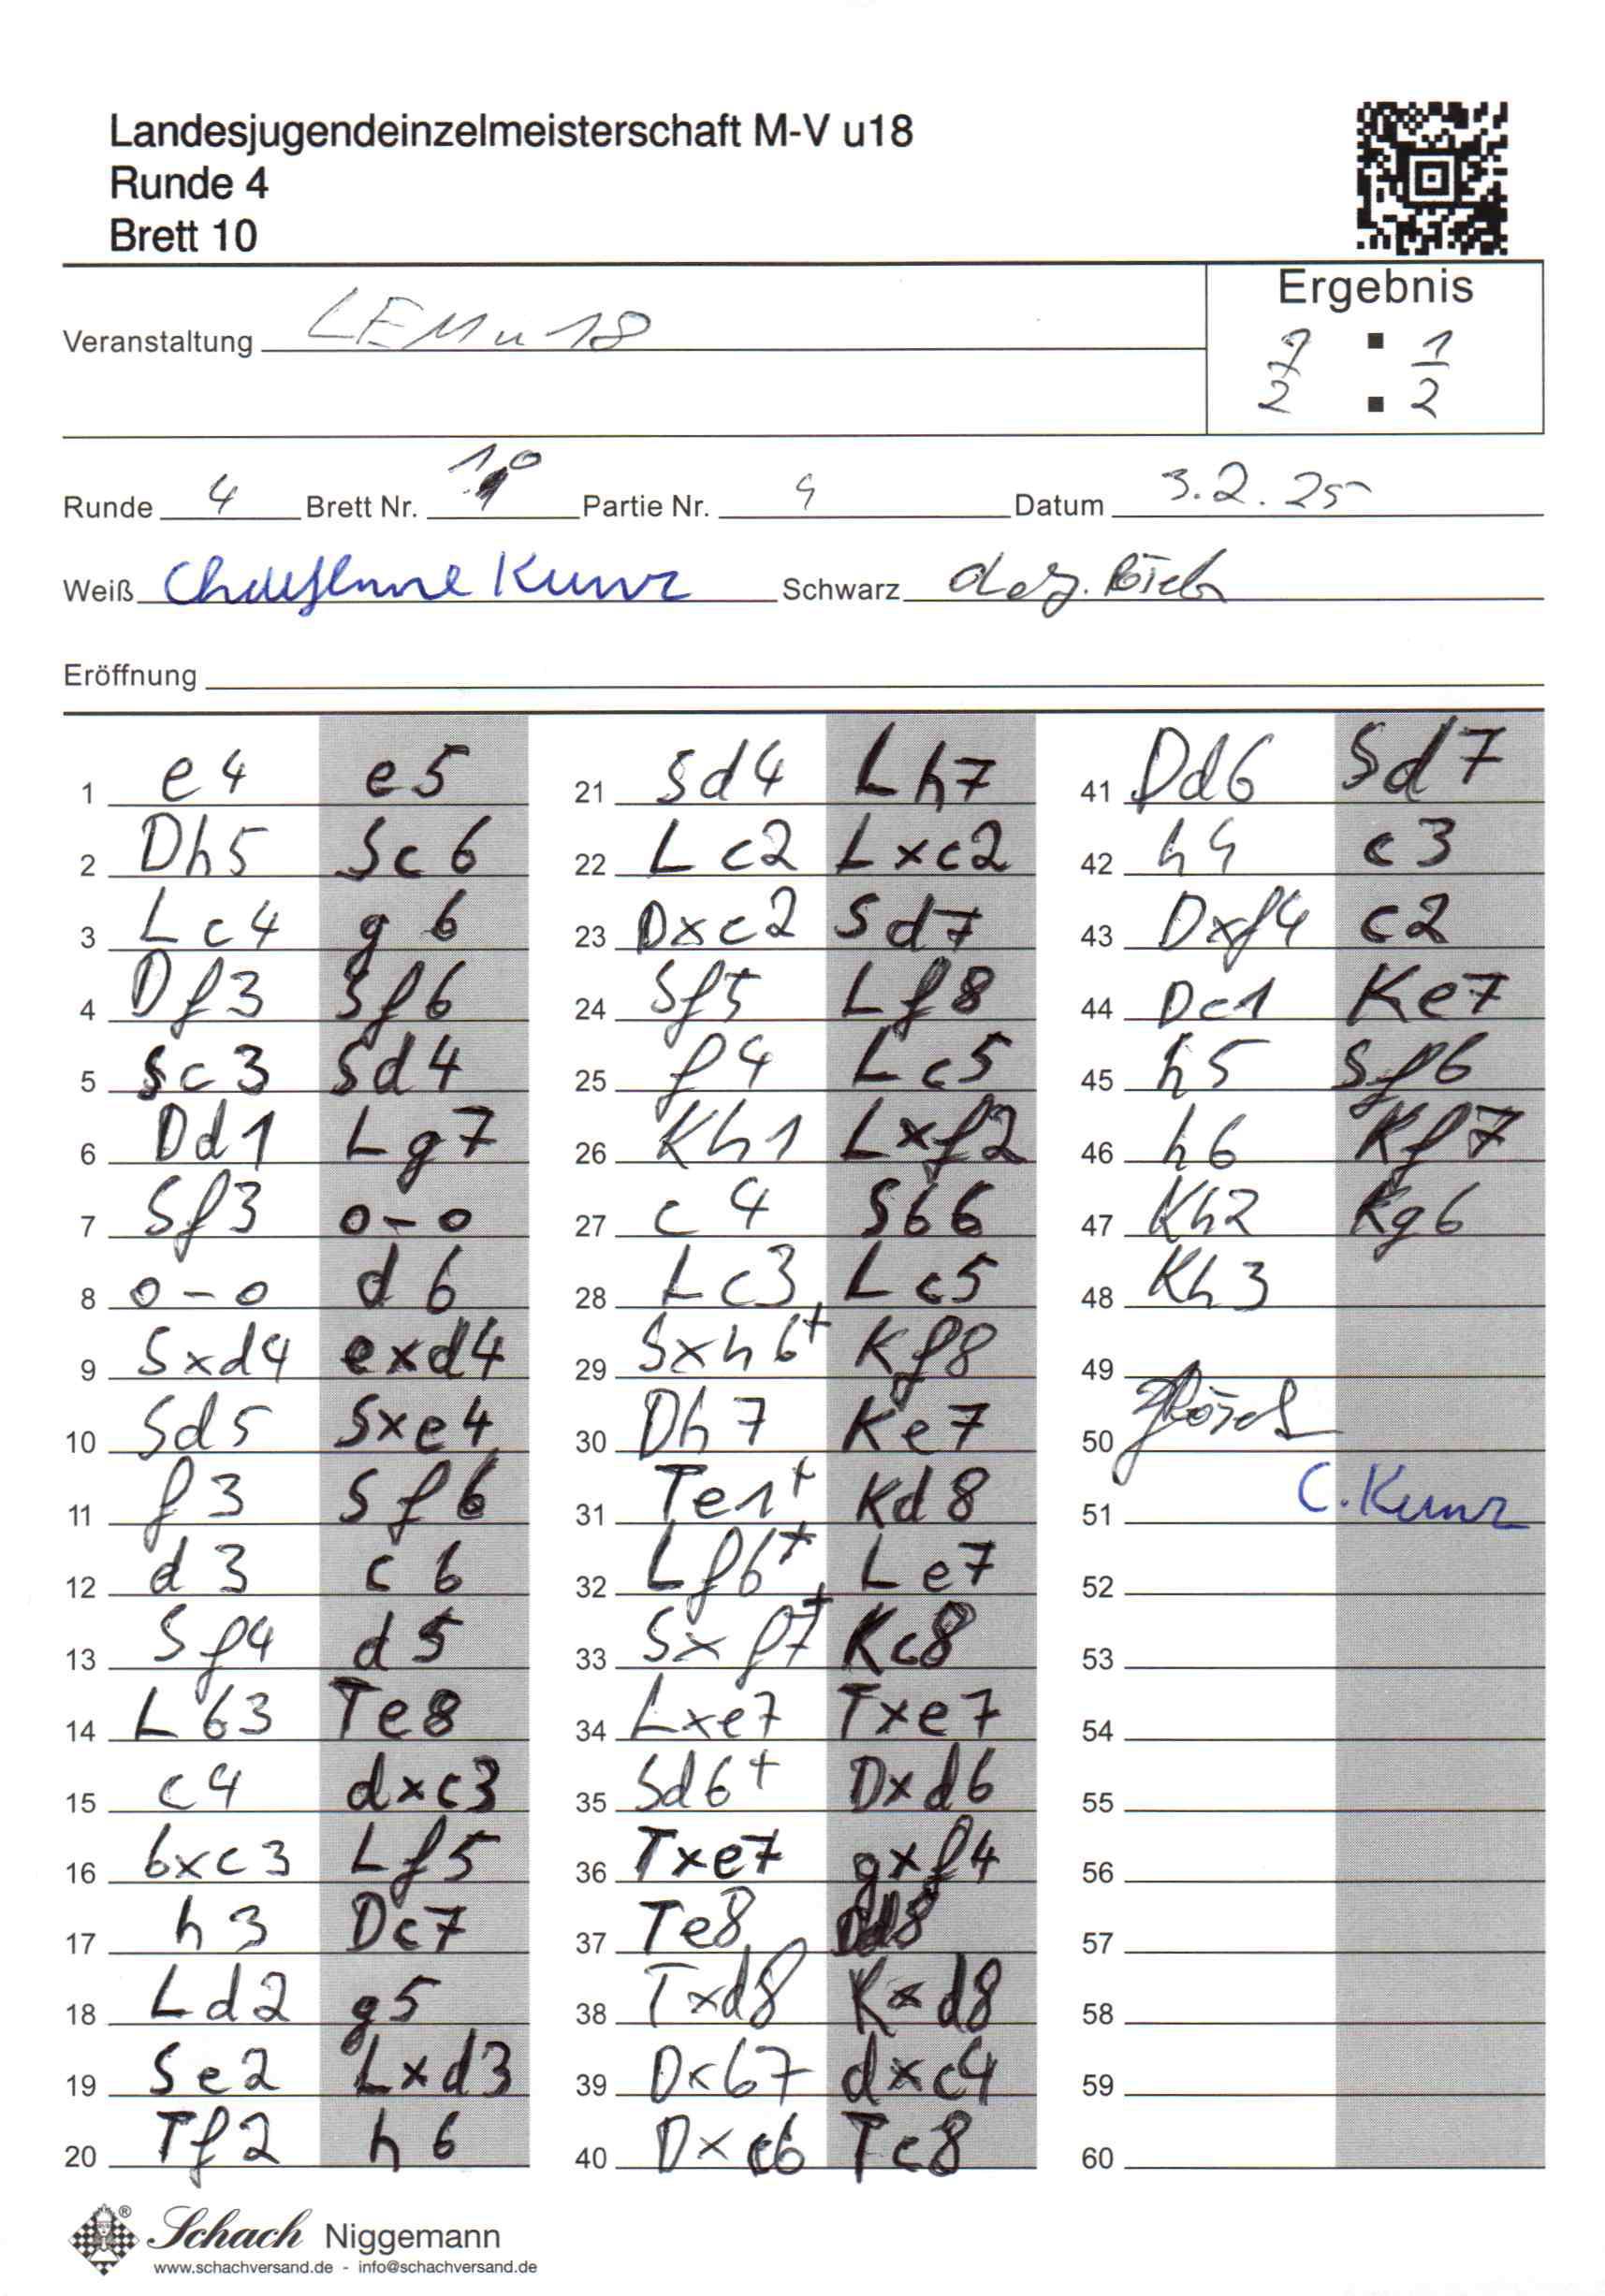 Landesjugendeinzelmeisterschaft M-V u18
Runde 4
Brett 10
Ergebnis
Veranstaltung LEM u 18
1/2 : 1/2
Runde 4 Brett Nr. 10 Partie Nr. 4 Datum 3.2.25
Weiß Kunz Schwarz
Eröffnung
1 e4 e5
2 Dh5 Sc6
3 Lc4 g6
4 Df3 Sf6
5 Sc3 Sd4
6 Dd1 Lg7
7 Sf3 0-0
8 0-0 d6
9 Sxd4 exd4
10 Sd5 Sxe4
11 f3 Sf6
12 d3 c6
13 Sf4 d5
14 Lb3 Te8
15 c4 dxc3
16 bxc3 Lf5
17 h3 Dc7
18 Ld2 g5
19 Se2 Lxd3
20 Tf2 h6
21 Sd4 Lh7
22 Lc2 Lxc2
23 Dxc2 Sd7
24 Sf5 Lf8
25 f4 Lc5
26 Kh1 Lxf2
27 c4 Sb6
28 Lc3 Lc5
29 Sxh6+ Kf8
30 Dh7 Ke7
31 Te1+ Kd8
32 Lf6+ Le7
33 Sxf7+ Kc8
34 Lxe7 Txe7
35 Sd6+ Dxd6
36 Txe7 gxf4
37 Te8 Dd8
38 Txd8 Kxd8
39 Dxb7 dxc4
40 Dxc6 Tc8
41 Dd6 Sd7
42 h4 c3
43 Dxf4 c2
44 Dc1 Ke7
45 h5 Sf6
46 h6 Kf7
47 Kh2 Kg6
48 Kh3
49
50
51 C. Kunz
52
53
54
55
56
57
58
59
60
Schach Niggemann
www.schachversand.de - info@schachversand.de